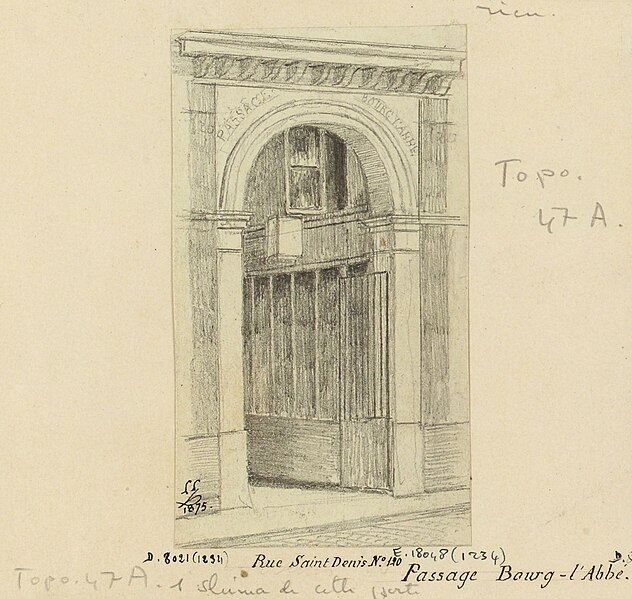 rien.
PASSAGE BOURG L'ABBÉ
Topo.
47 A.
1875.
D. 8021 (1234) E. 18048 (1234) D.
Rue Saint Denis No. 120
Passage Bourg-l'Abbé.
Topo. 47 A. de cette porte